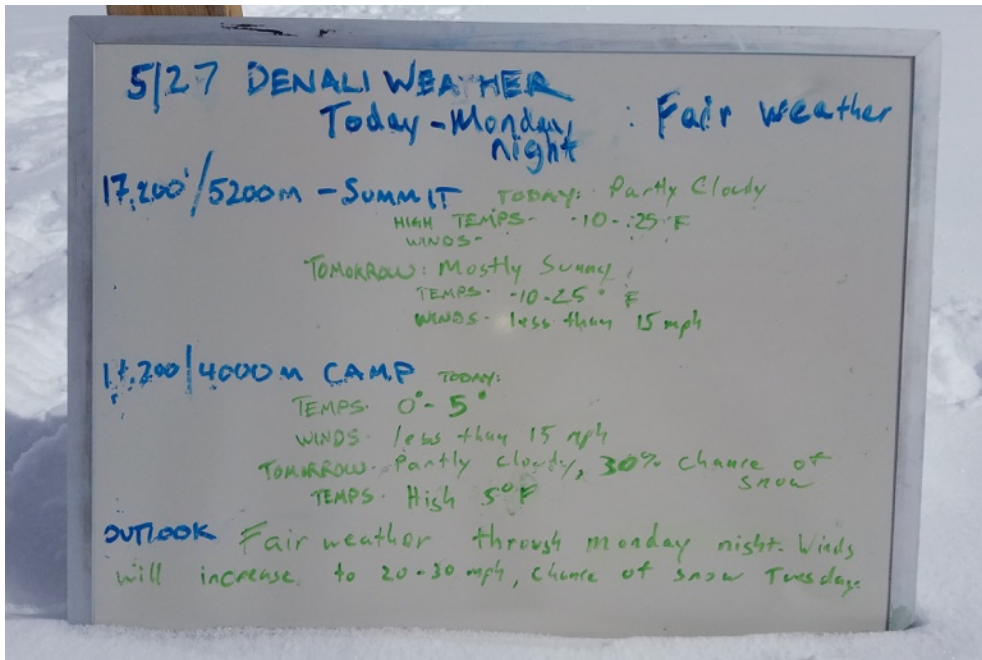 5/27 DENALI WEATHER
Today - Monday night : Fair weather
17,200'/5200m - SUMMIT TODAY: Partly Cloudy
HIGH TEMPS- -10 - -25°F
WINDS-
TOMORROW: Mostly Sunny
TEMPS- -10-25° F
WINDS- less than 15 mph
14,200/4000m CAMP TODAY:
TEMPS- 0°- 5°
WINDS- less than 15 mph
TOMORROW- Partly Cloudy, 30% chance of snow
TEMPS- High 5°F
OUTLOOK Fair weather through monday night. Winds
will increase to 20-30 mph, chance of snow Tuesday.